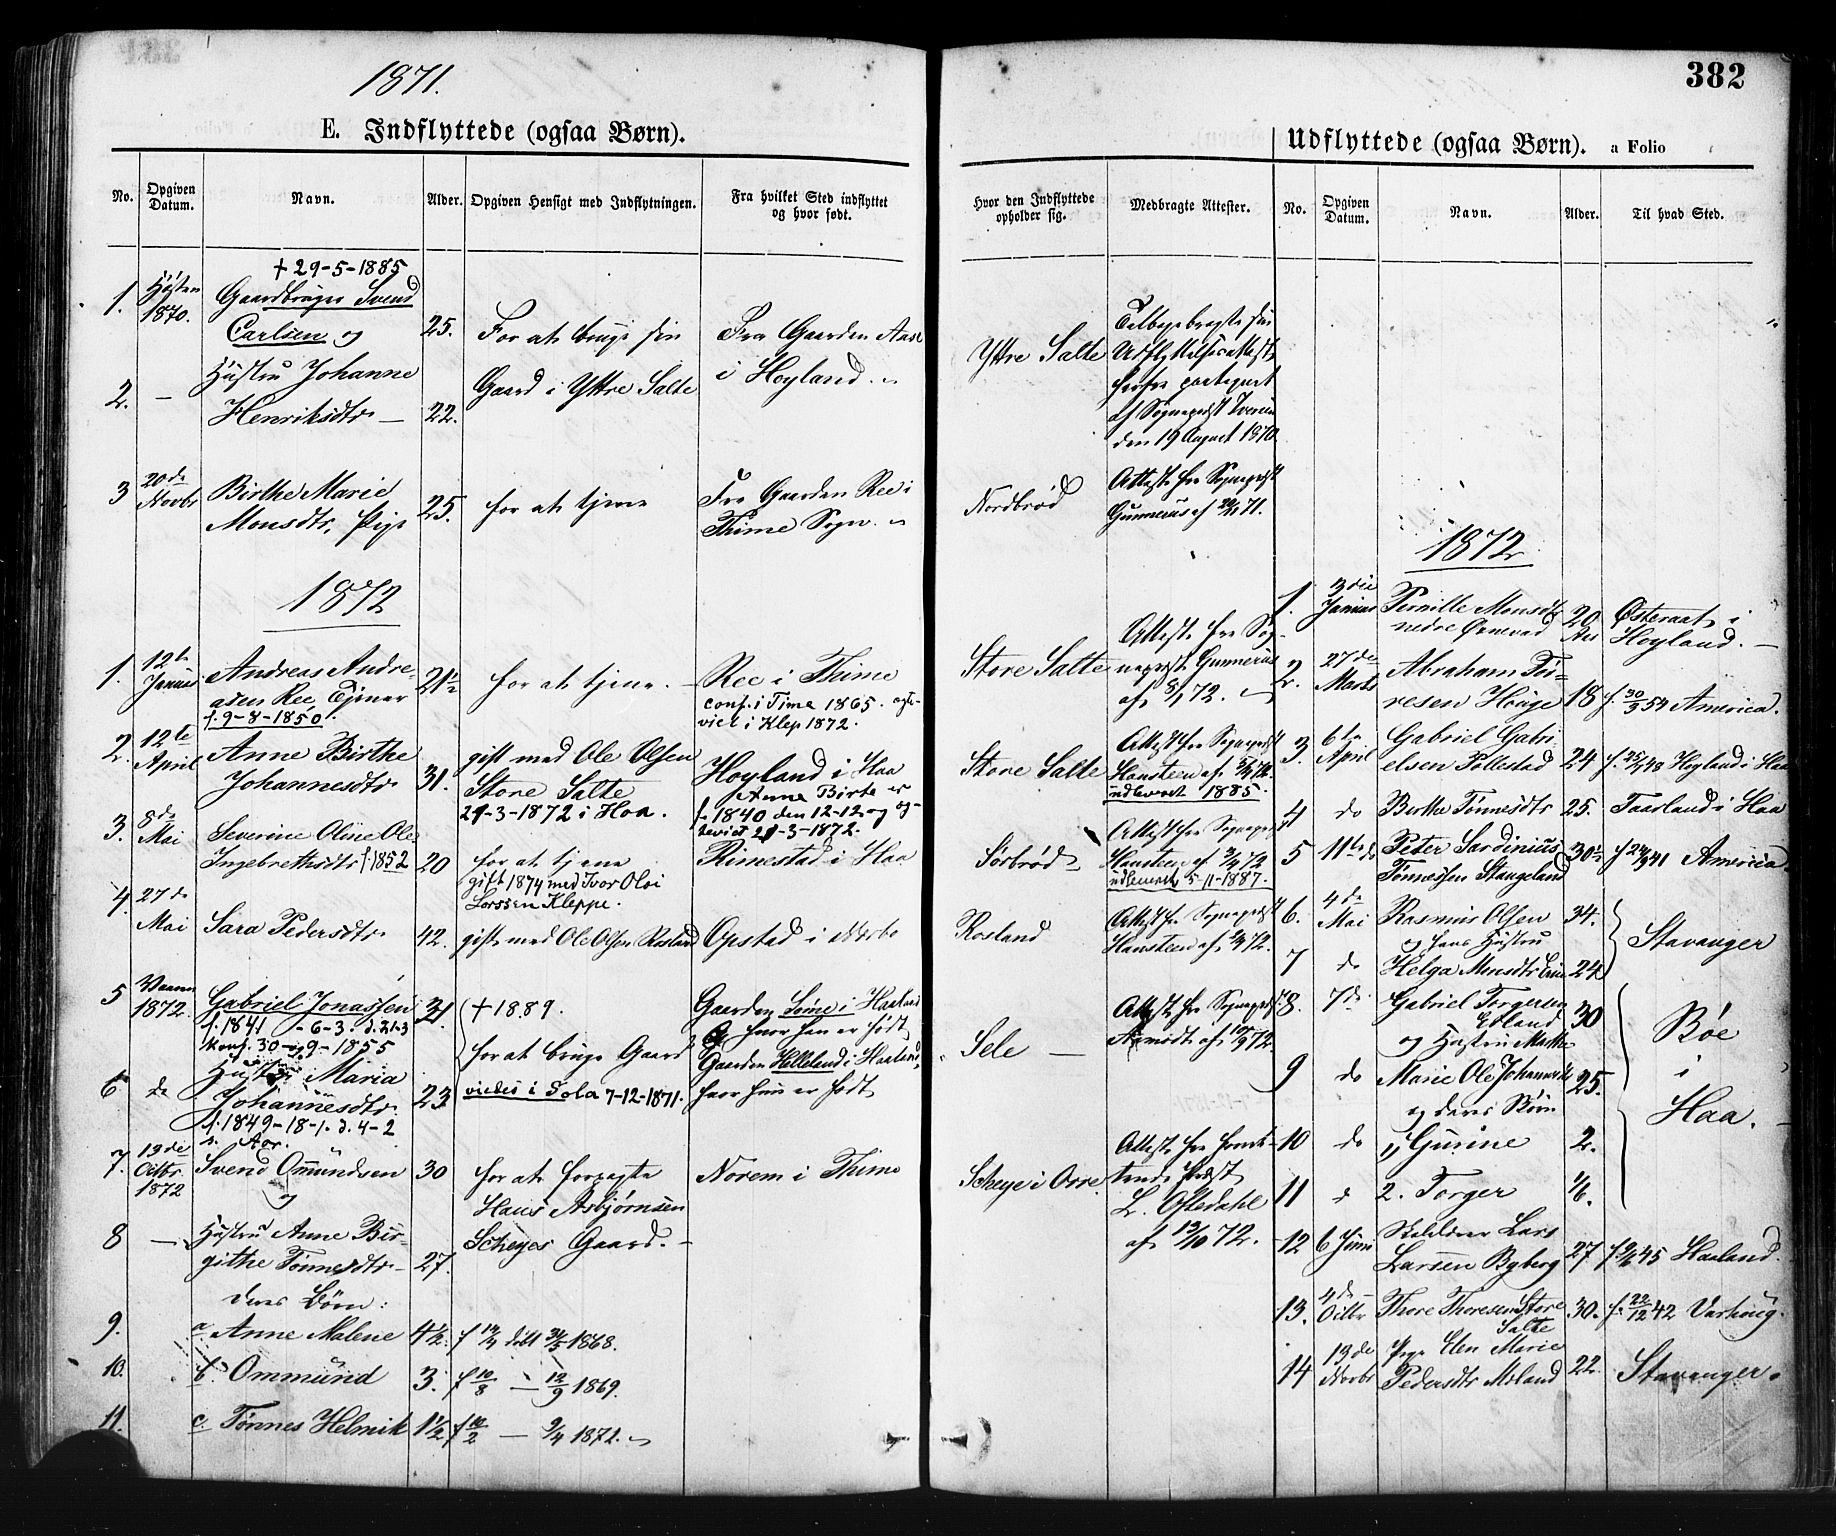 382
1871.
E. Indflyttede (ogsaa Børn).
No. Opgiven Datum. Navn. Alder. Opgiven Hensigt med Indflytningen. Fra hvilket Sted indflyttet og hvor født. Hvor den Indflyttede opholder sig. Medbragte Attester.
† 29-5-1885
1. Høsten 1870. Gaardbruger Svend Carlsen og 25. For at bruge sin Gaard i Yttre Salte Fra Gaarden i Høyland. Yttre Salte
den 19 August 1870
2. — Hustru Johanne Henriksdtr — 22.
3 20de Novbr Birthe Marie Monsdtr, Pige 25. for at tjene Fra Gaarden Ree i Thime Sogn. Nordbrød Attest fra Sognepræst Gunnerius af 20/11 71.
1872
1. 12te Januar Andreas Andreasen Ree, Tjener 21½ for at tjene. — Ree i Thime Store Salte Attest fra Sognepræst Gunnerius af 8/1 72.
f. 9-8-1850.
conf. i Time 1865.
viet i Klep 1872.
2. 12te April Anne Birthe Johannesdtr 31. gift med Ole Olsen Store Salte Høyland i Haa Store Salte Attest fra Sognepræst Hansteen af 5/4 72.
29-3-1872 i Haa.
Anne Birte er f. 1840 den 12-12 og
29-3-1872.
udleveret 1885.
3. 8de Mai Severine Oline Ole Ingebrethsdtr f. 1852 20 for at tjene Rimestad i Haa Sørbrød Attest fra Sognepræst Hansteen
gift 1874 med Ivar Olai Larssen Kleppe.
udleveret 5-11-1887.
4. 27de Mai Sara Pedersdtr 42. gift med Ole Olsen Rosland Opstad i Nærbø Rosland Attest fra Sognepræst Hansteen
5 Vaaren 1872. Gabriel Jonassen 31 for at bruge Gaard Gaarden Sømme i Haaland hvor han er født Sele — Attest fra Sognepræst
f. 1841 - 6-3. d. 21-3
Konf. 30-9-1855
† 1889.
viedes i Sola 7-12-1871.
6 do Hustru Maria Johannesdtr 23 Gaarden Helleland i Haaland, hvor hun er født
f. 1849-18-1. d. 4-2
7. 13de Octbr 1872 Svend Omundsen og 30 for at forpagte Hans Asbjørnsen Scheyes Gaard. — Norem i Thime Scheye i Orre. Attest fra L. Oftedahl af 13/10 72. —
8 — Hustru Anne Birgithe Tønnesdtr — 27.
deres Børn:
9. a. Anne Malene 4½
1868.
10. b. Ommund 3. f 10/8 — 12/9 1869.
11. c. Tønnes Helmik 1½
Udflyttede (ogsaa Børn). a Folio
No. Opgiven Datum. Navn. Alder. Til hvad Sted.
1872
1. 3die Januar Pernille Monsdtr nedre Ørnevad 20 Aar Østeraat i Høyland. —
2. 27de Marts Abraham Torresen Hauge 18 f. 30/3 54 America.
3. 6te April Gabriel Gabrielsen Pollestad 24 Høyland i Haa
4 do Berthe Tønnesdtr 25. Taarland i Haa
5 11te do Peter Sardinius Tønnessen Stangeland 30½ America
6. 4de Mai Rasmus Olsen 34. Stavanger
og hans Hustru
7 do Helga Monsdtr 24
8. 7de Gabriel Torgersen 30 Bøe i Haa.
og Hustru Marthe
9 do Marie Ole Johannesdtr 25.
og deres Børn
10 do 1) Gurine 2.
11 do 2. Torger 1/6.
12 6 Juni Lars Larssen Byberg 27 Haaland.
13. 4de Octbr Thore Thoresen Store Salte 30. f. 22/12 42 Varhoug.
14 13de Novbr Pige Elen Marie Pedersdtr Meland 22 Stavanger.